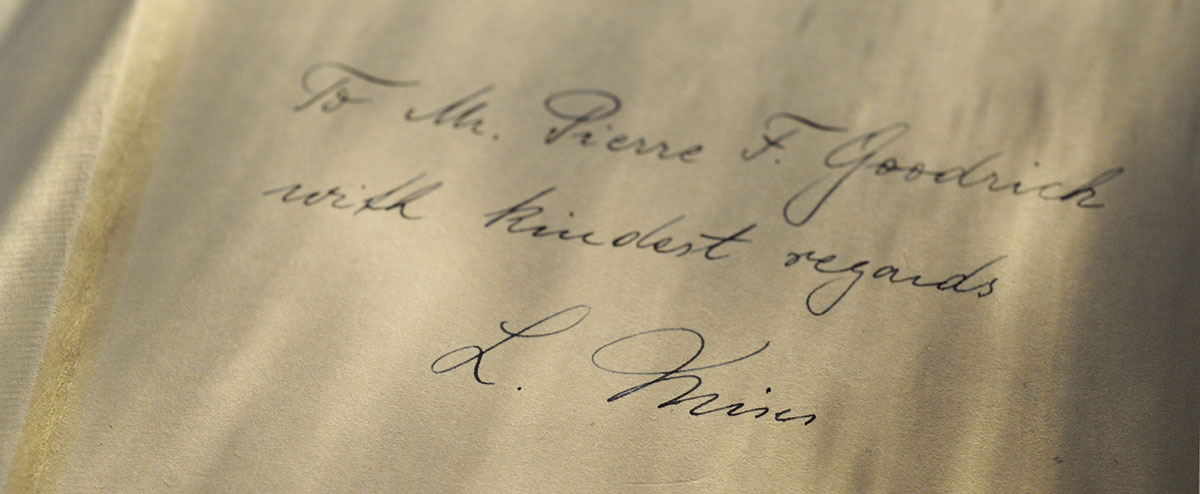 To Mr. Pierre F. Goodrich
with kindest regards
L. Mises